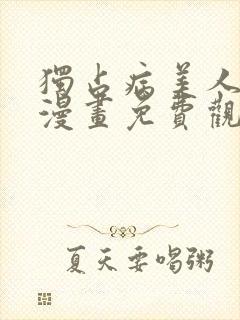 獨占病美人
漫畫免費觀
夏天要喝粥